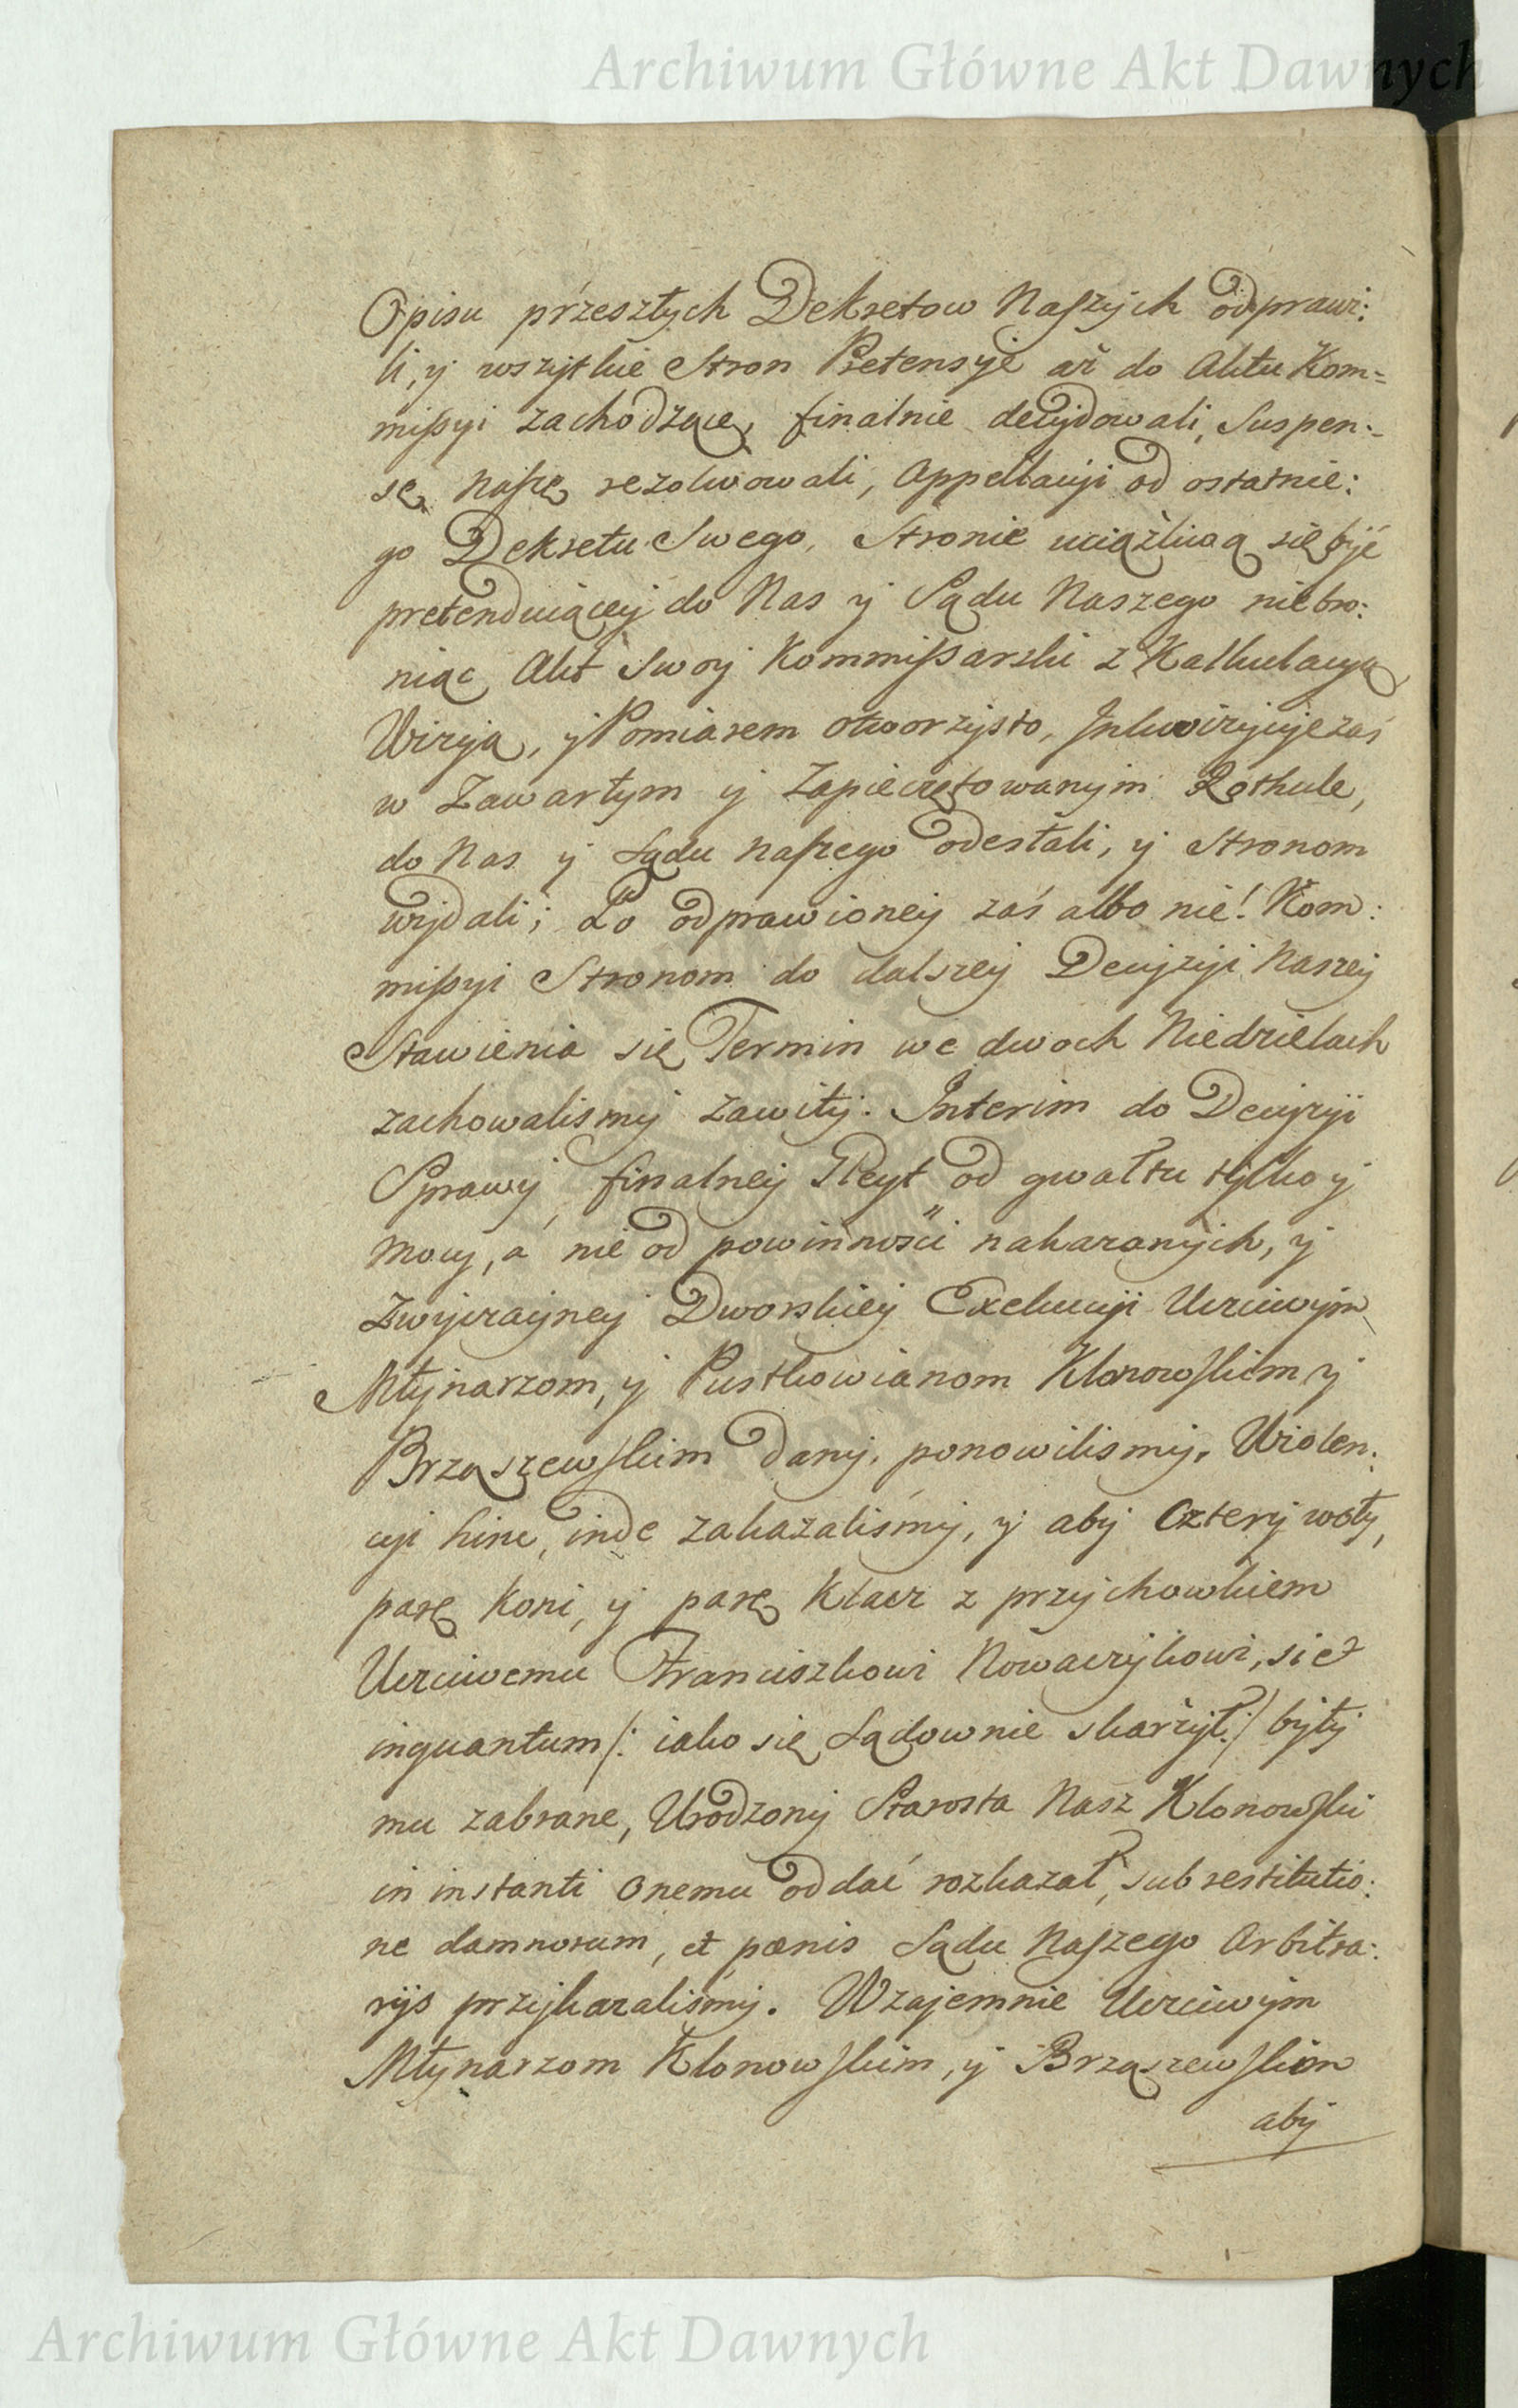 Archiwum Główne Akt Dawnych
Opisu przeszłych Dekretow Naszych odprawi:
li, y wszytkie Stron Pretensye aż do Aktu Kom=
missyi zachodzące, finalnie decydowali, Suspen:
sę naszę rezolwowali, Appellacyi od ostatnie:
go Dekretu Swego, Stronie uciążliwą się być
pretenduiącey do Nas y Sądu Naszego niebro:
niąc Akt Swoy Kommissarski z Kalkulacyą
Wizyą, y Pomiarem otworzysto, Inkwizycyie zaś
w Zawartym y Zapieczętowanym Rothule,
do Nas y Sądu naszego odesłali, y Stronom
wydali; Po odprawioney zaś albo nie! Kom:
missyi Stronom do dalszey Decyzyi Naszey
Stawienia się Termin we dwoch Niedzielach
zachowalismy zawity. Interim do Decyzyi
Sprawy finalney Gleyt od gwałtu tylko y
mocy, a nie od powinności nakazanych, y
Zwyczayney Dworskiey Exekucyi Uczciwym
Młynarzom, y Pustkowianom Klonowskiem y
Brząszewskim dany, ponowilismy. Wiolen:
cyi hinc, inde zakazaliśmy, y aby Cztery woły,
parę koni, y parę Klacz z przychowkiem
Uczciwemu Franciszkowi Nowaczykowi, siet
inquantum /: iako się Sądownie skarżył :/ były
mu zabrane, Urodzony Starosta Nasz Klonowski
in instanti onemu oddać rozkazał, sub restitutio:
ne damnorum, et pœnis Sądu Naszego Arbitra:
rijs przykazaliśmy. Wzajemnie Uczciwym
Młynarzom Klonowskim, y Brząszewskim
aby
Archiwum Główne Akt Dawnych